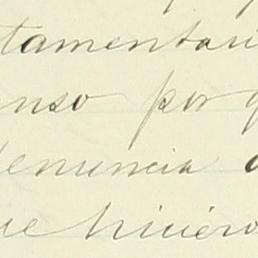 tamentari
enso por q
denuncia
ue hiciero